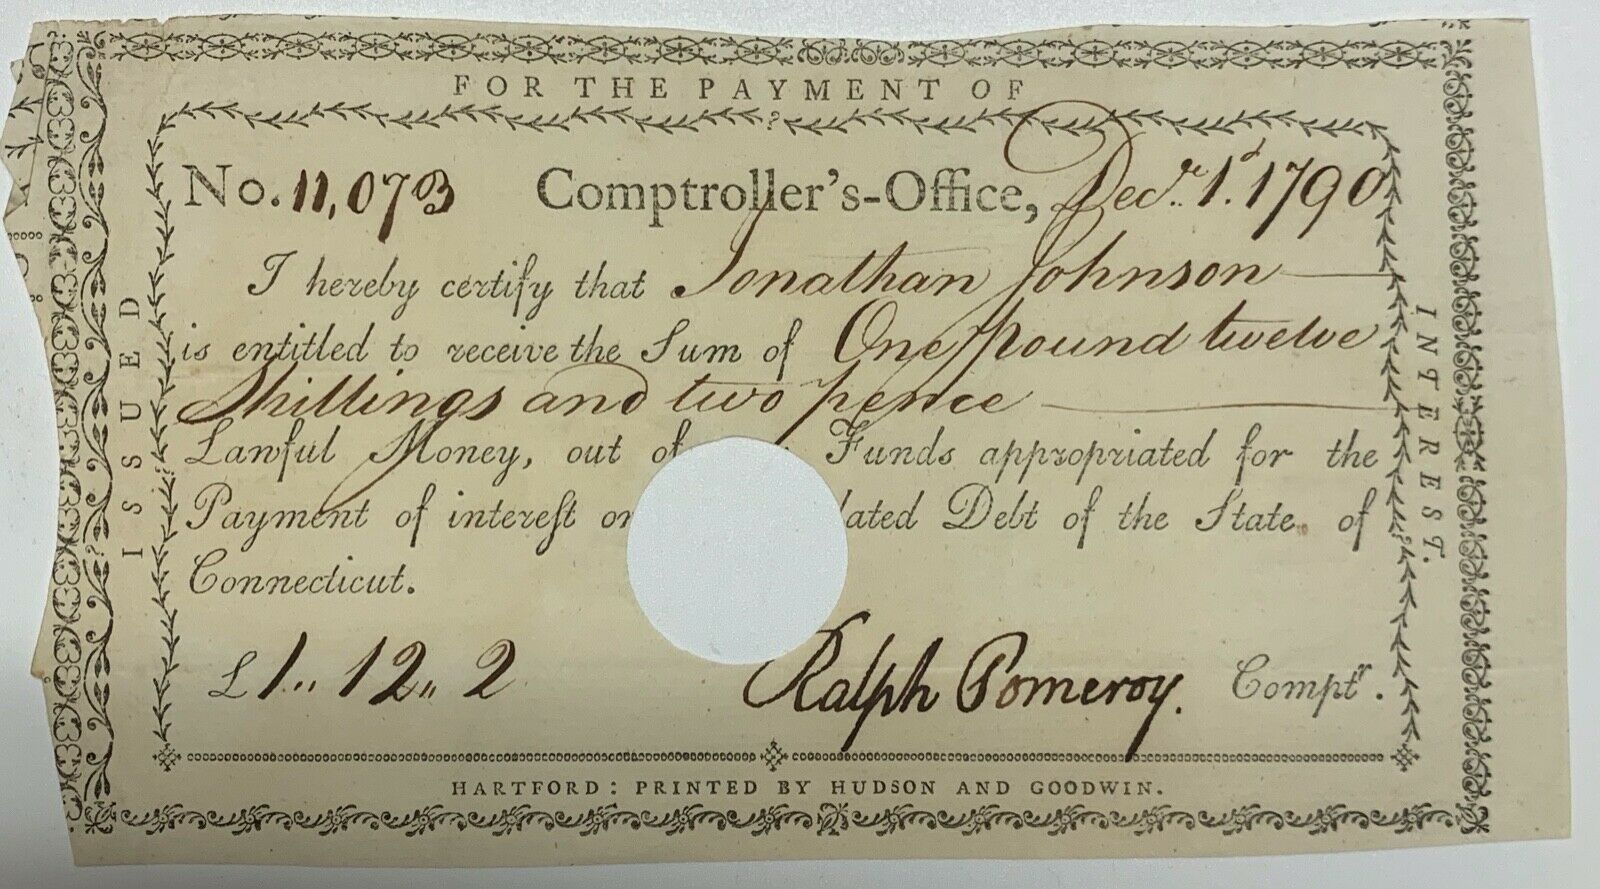 FOR THE PAYMENT OF
ISSUED
INTEREST.
No. 11,073 Comptroller's-Office, Decr. 1st. 1790
I hereby certify that Jonathan Johnson
is entitled to receive the Sum of One pound twelve
Shillings and two pence
Lawful Money, out of Funds appropriated for the
Payment of interest on lated Debt of the State of
Connecticut.
£1.. 12.. 2 Ralph Pomeroy. Comptr.
HARTFORD: PRINTED BY HUDSON AND GOODWIN.